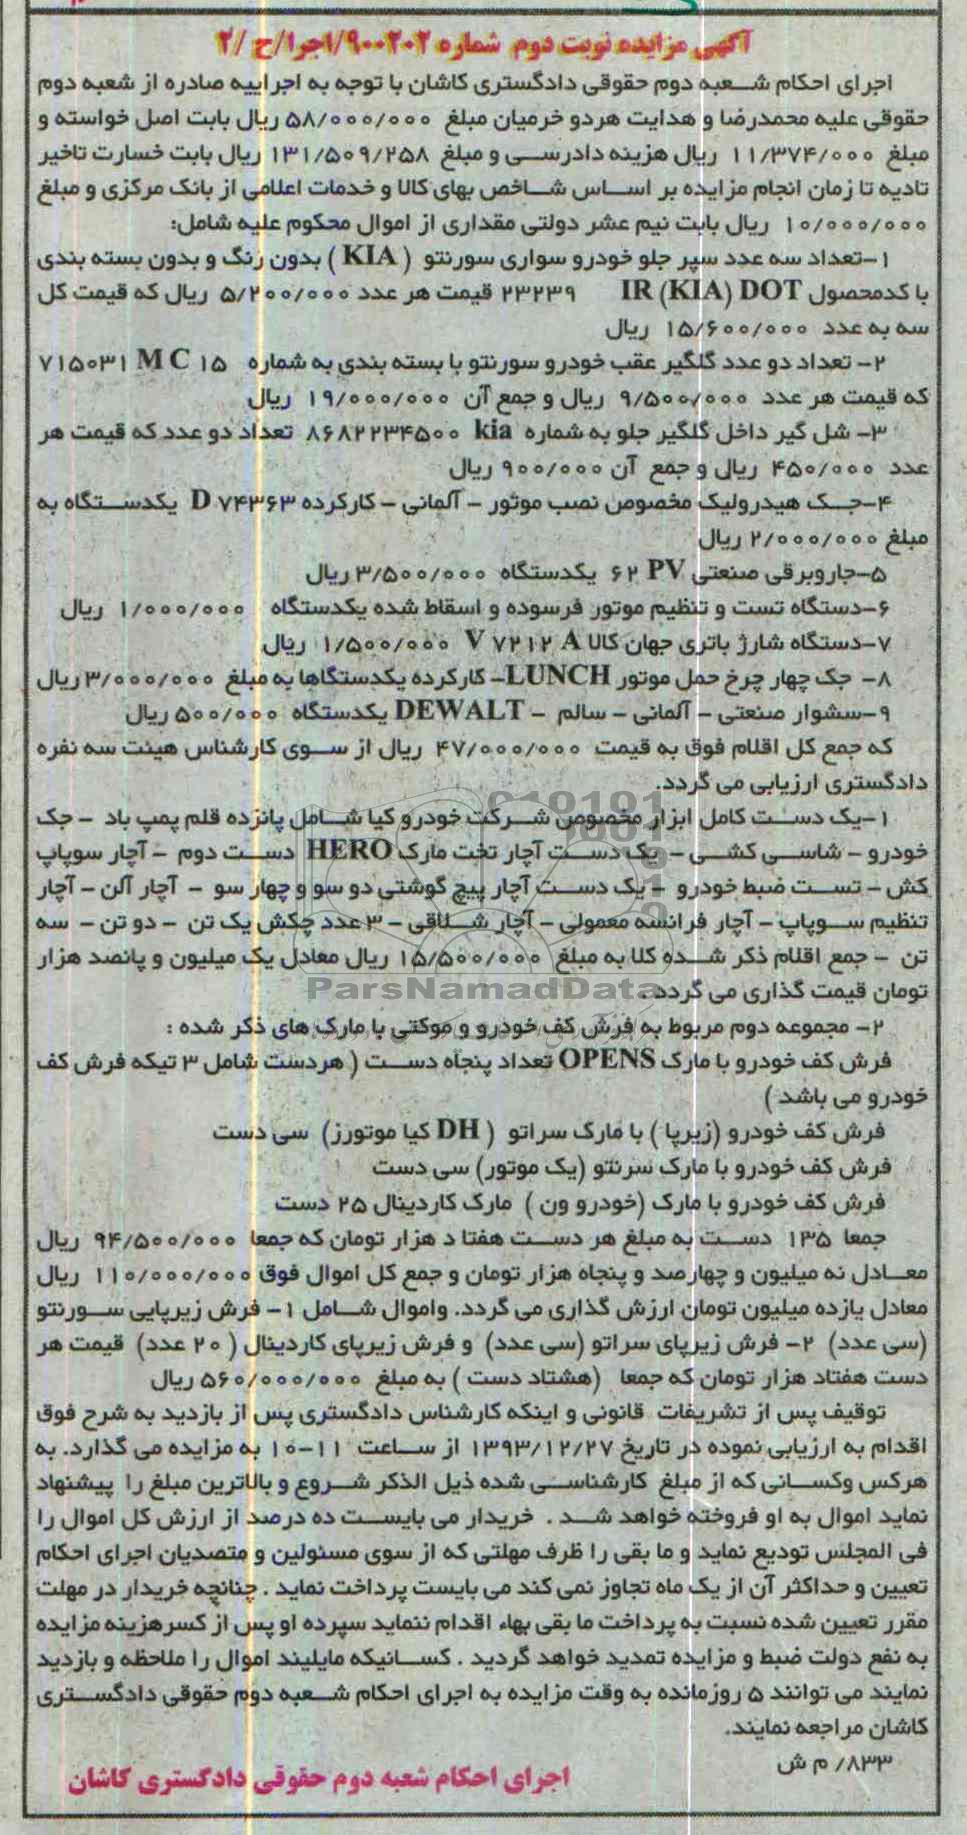 آگهی مزایده نوبت دوم شماره ۹۰۰۲۰۲/اجرا/ح /۲
اجرای احکام شعبه دوم حقوقی دادگستری کاشان با توجه به اجراییه صادره از شعبه دوم
حقوقی علیه محمدرضا و هدایت هردو خرمیان مبلغ ۵۸/۰۰۰/۰۰۰ ریال بابت اصل خواسته و
مبلغ ۱۱/۳۷۴/۰۰۰ ریال هزینه دادرسی و مبلغ ۱۳۱/۵۰۹/۲۵۸ ریال بابت خسارت تاخیر
تادیه تا زمان انجام مزایده بر اساس شاخص بهای کالا و خدمات اعلامی از بانک مرکزی و مبلغ
۱۰/۰۰۰/۰۰۰ ریال بابت نیم عشر دولتی مقداری از اموال محکوم علیه شامل:
۱-تعداد سه عدد سپر جلو خودرو سواری سورنتو ( KIA ) بدون رنگ و بدون بسته بندی
با کدمحصول IR (KIA) DOT ۲۳۲۳۹ قیمت هر عدد ۵/۲۰۰/۰۰۰ ریال که قیمت کل
سه به عدد ۱۵/۶۰۰/۰۰۰ ریال
۲- تعداد دو عدد گلگیر عقب خودرو سورنتو با بسته بندی به شماره ۱۵ M C ۷۱۵۰۳۱
که قیمت هر عدد ۹/۵۰۰/۰۰۰ ریال و جمع آن ۱۹/۰۰۰/۰۰۰ ریال
۳- شل گیر داخل گلگیر جلو به شماره kia ۸۶۸۲۲۳۴۵۰۰ تعداد دو عدد که قیمت هر
عدد ۴۵۰/۰۰۰ ریال و جمع آن ۹۰۰/۰۰۰ ریال
۴-جک هیدرولیک مخصوص نصب موتور - آلمانی - کارکرده D ۷۴۳۶۳ یکدستگاه به
مبلغ ۲/۰۰۰/۰۰۰ ریال
۵-جاروبرقی صنعتی PV ۶۲ یکدستگاه ۳/۵۰۰/۰۰۰ ریال
۶-دستگاه تست و تنظیم موتور فرسوده و اسقاط شده یکدستگاه ۱/۰۰۰/۰۰۰ ریال
۷-دستگاه شارژ باتری جهان کالا V ۷۲۱۲ A ۱/۵۰۰/۰۰۰ ریال
۸- جک چهار چرخ حمل موتور LUNCH- کارکرده یکدستگاها به مبلغ ۳/۰۰۰/۰۰۰ ریال
۹-سشوار صنعتی - آلمانی - سالم - DEWALT یکدستگاه ۵۰۰/۰۰۰ ریال
که جمع کل اقلام فوق به قیمت ۴۷/۰۰۰/۰۰۰ ریال از سوی کارشناس هیئت سه نفره
دادگستری ارزیابی می گردد.
۱-یک دست کامل ابزار مخصوص شرکت خودرو کیا شامل پانزده قلم پمپ باد - جک
خودرو - شاسی کشی - یک دست آچار تخت مارک HERO دست دوم - آچار سوپاپ
کش - تست ضبط خودرو - یک دست آچار پیچ گوشتی دو سو و چهار سو - آچار آلن - آچار
تنظیم سوپاپ - آچار فرانسه معمولی - آچار شلاقی - ۳ عدد چکش یک تن - دو تن - سه
تن - جمع اقلام ذکر شده کلا به مبلغ ۱۵/۵۰۰/۰۰۰ ریال معادل یک میلیون و پانصد هزار
تومان قیمت گذاری می گردد .
ParsNamadData
۲- مجموعه دوم مربوط به فرش کف خودرو و موکتی با مارک های ذکر شده :
فرش کف خودرو با مارک OPENS تعداد پنجاه دست ( هردست شامل ۳ تیکه فرش کف
خودرو می باشد )
فرش کف خودرو (زیرپا ) با مارک سراتو ( DH کیا موتورز) سی دست
فرش کف خودرو با مارک سرنتو (یک موتور) سی دست
فرش کف خودرو با مارک (خودرو ون ) مارک کاردینال ۲۵ دست
جمعا ۱۳۵ دست به مبلغ هر دست هفتا د هزار تومان که جمعا ۹۴/۵۰۰/۰۰۰ ریال
معادل نه میلیون و چهارصد و پنجاه هزار تومان و جمع کل اموال فوق ۱۱۰/۰۰۰/۰۰۰ ریال
معادل یازده میلیون تومان ارزش گذاری می گردد. واموال شامل ۱- فرش زیرپایی سورنتو
(سی عدد) ۲- فرش زیرپای سراتو (سی عدد) و فرش زیرپای کاردینال ( ۲۰ عدد) قیمت هر
دست هفتاد هزار تومان که جمعا (هشتاد دست ) به مبلغ ۵۶۰/۰۰۰/۰۰۰ ریال
توقیف پس از تشریفات قانونی و اینکه کارشناس دادگستری پس از بازدید به شرح فوق
اقدام به ارزیابی نموده در تاریخ ۱۳۹۳/۱۲/۲۷ از ساعت ۱۱-۱۰ به مزایده می گذارد. به
هرکس وکسانی که از مبلغ کارشناسی شده ذیل الذکر شروع و بالاترین مبلغ را پیشنهاد
نماید اموال به او فروخته خواهد شد . خریدار می بایست ده درصد از ارزش کل اموال را
فی المجلس تودیع نماید و ما بقی را ظرف مهلتی که از سوی مسئولین و متصدیان اجرای احکام
تعیین و حداکثر آن از یک ماه تجاوز نمی کند می بایست پرداخت نماید . چنانچه خریدار در مهلت
مقرر تعیین شده نسبت به پرداخت ما بقی بهاء اقدام ننماید سپرده او پس از کسرهزینه مزایده
به نفع دولت ضبط و مزایده تمدید خواهد گردید . کسانیکه مایلیند اموال را ملاحظه و بازدید
نمایند می توانند ۵ روزمانده به وقت مزایده به اجرای احکام شعبه دوم حقوقی دادگستری
کاشان مراجعه نمایند.
۸۳۳/ م ش
اجرای احکام شعبه دوم حقوقی دادگستری کاشان